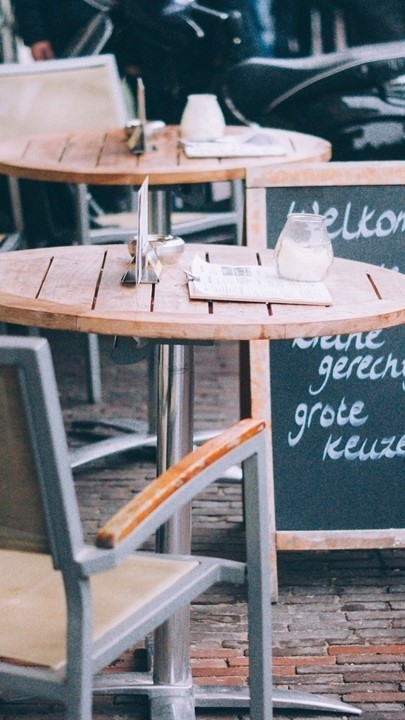 Welkom
kleine
gerecht
grote
keuze